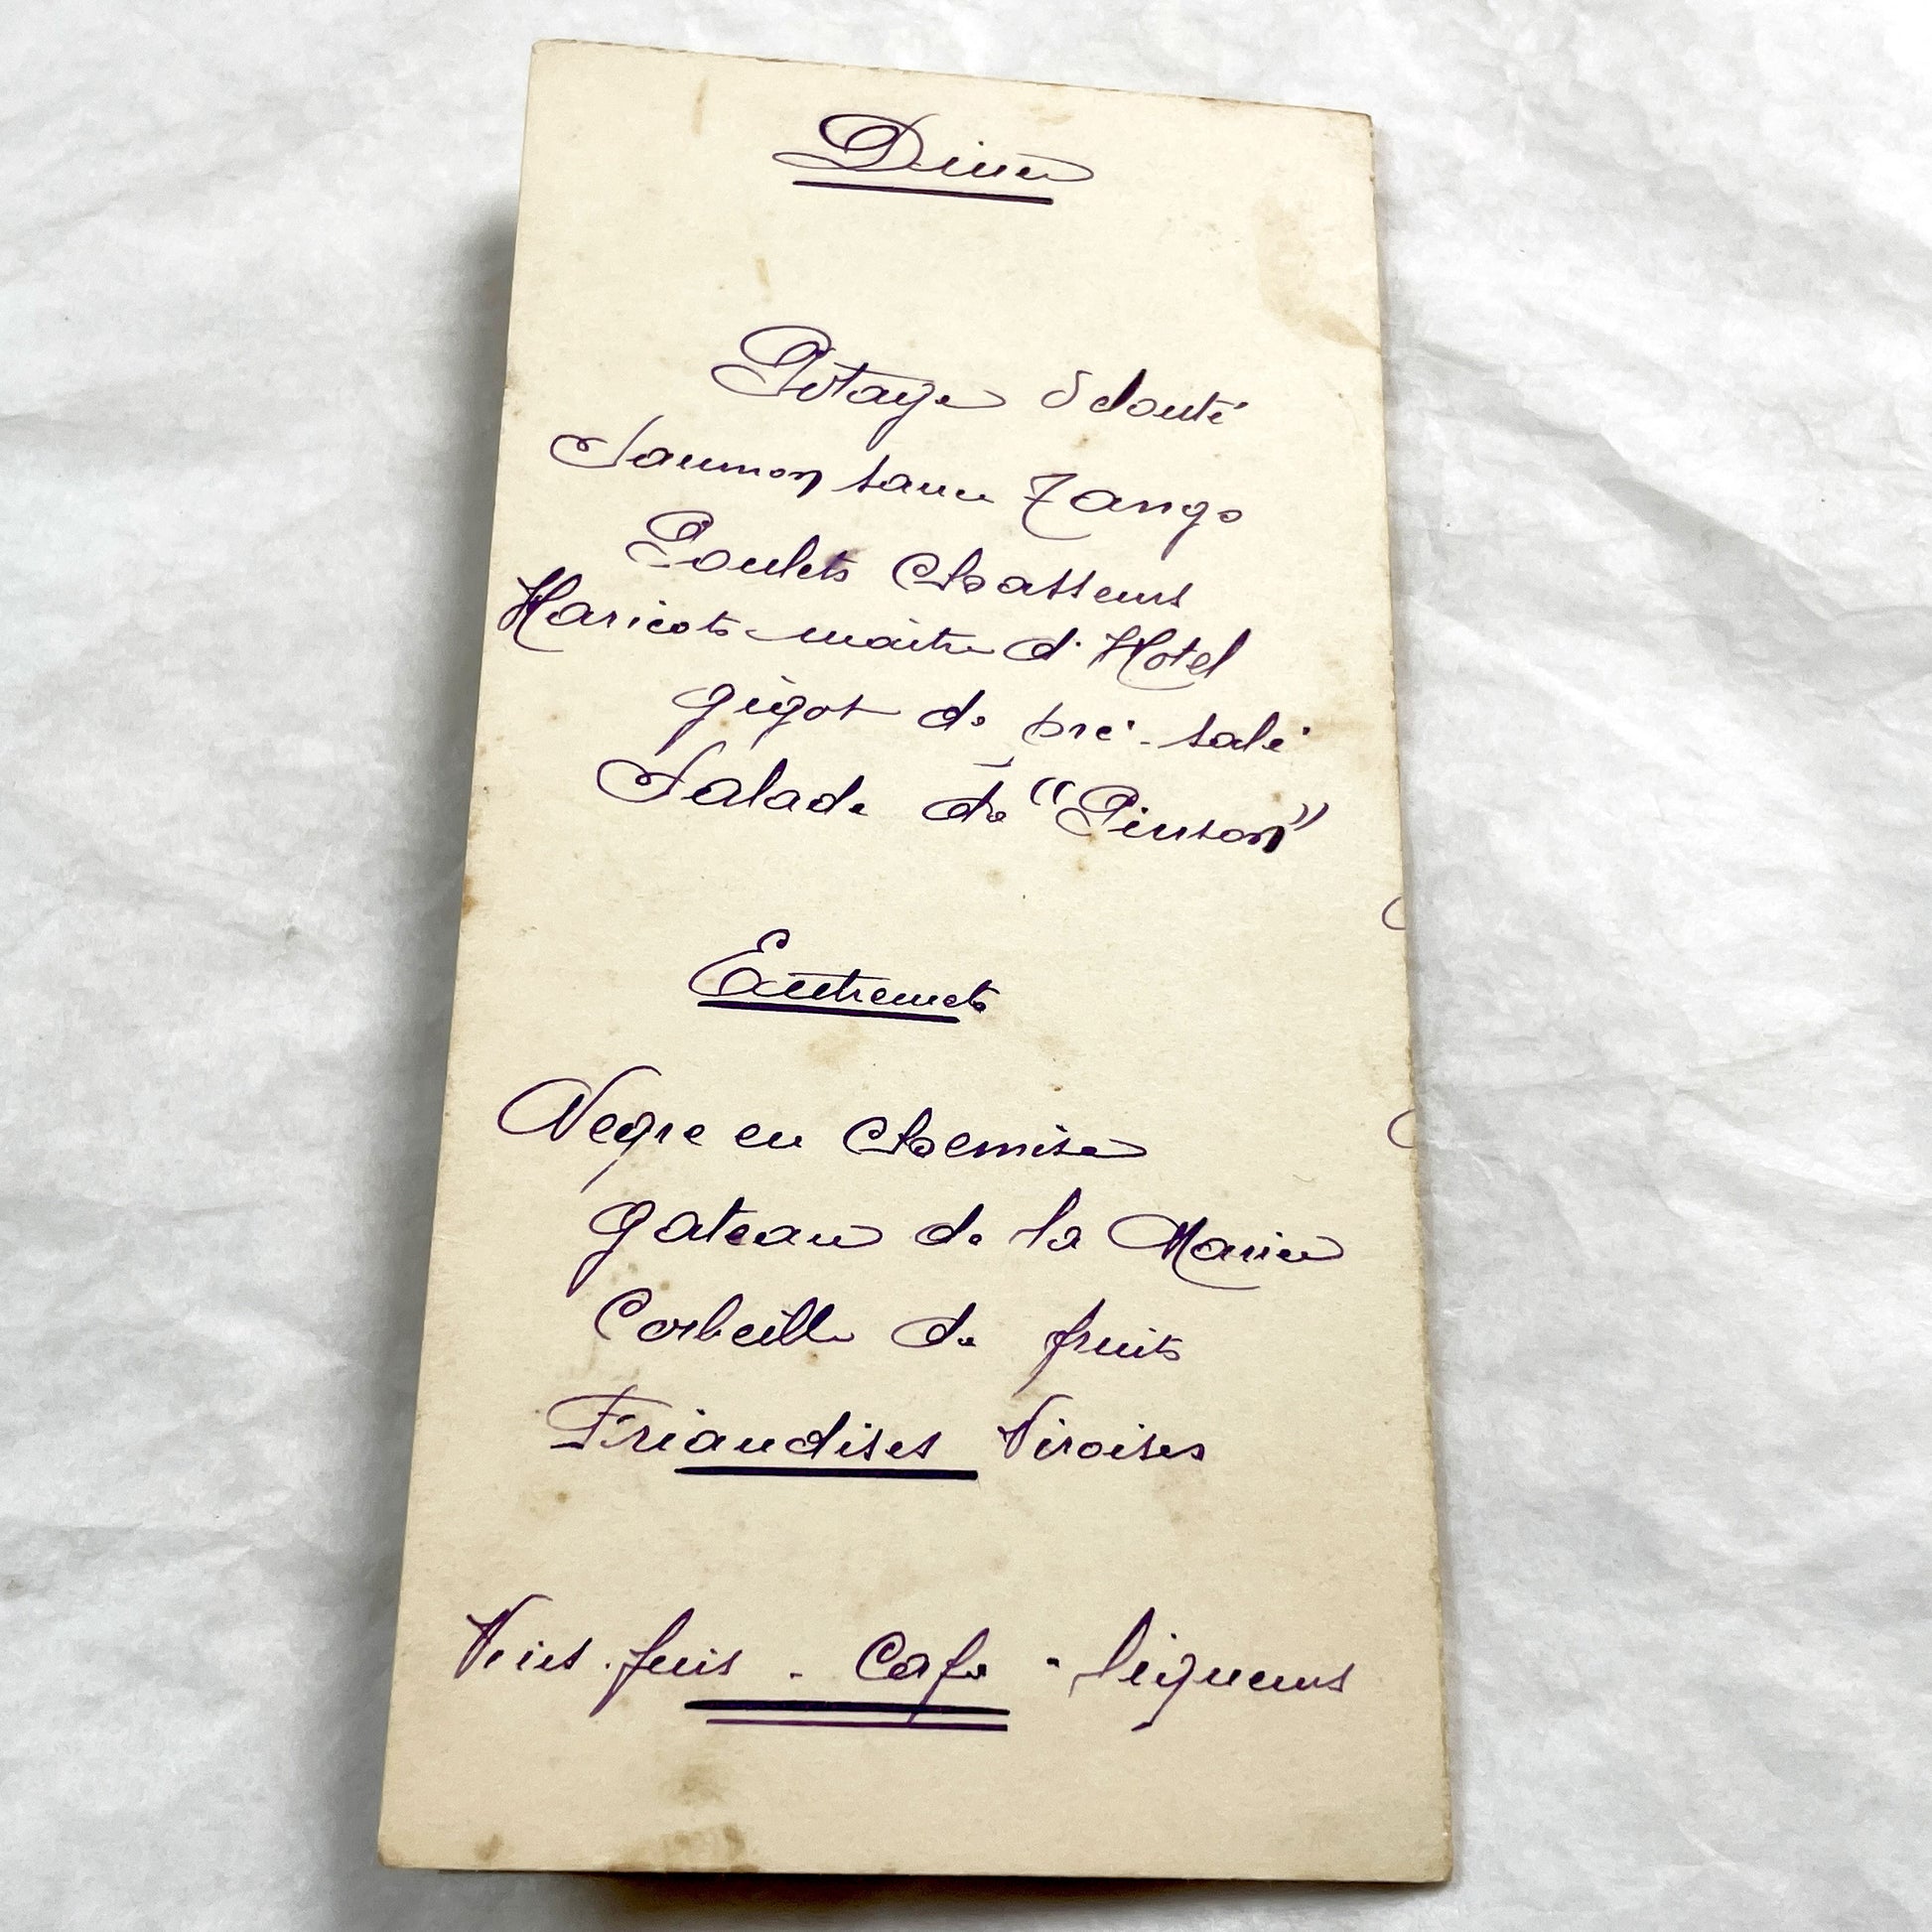 Diner
Potage Velouté
Saumon sauce Tango
Poulets Chasseurs
Haricots maitre d'Hotel
Gigot de pré-salé
Salade de "Pinson"
Entremets
Negre en Chemise
Gateau de la Mariée
Corbeille de fruits
Friandises Viroises
Vins fins - Cafe - liqueurs